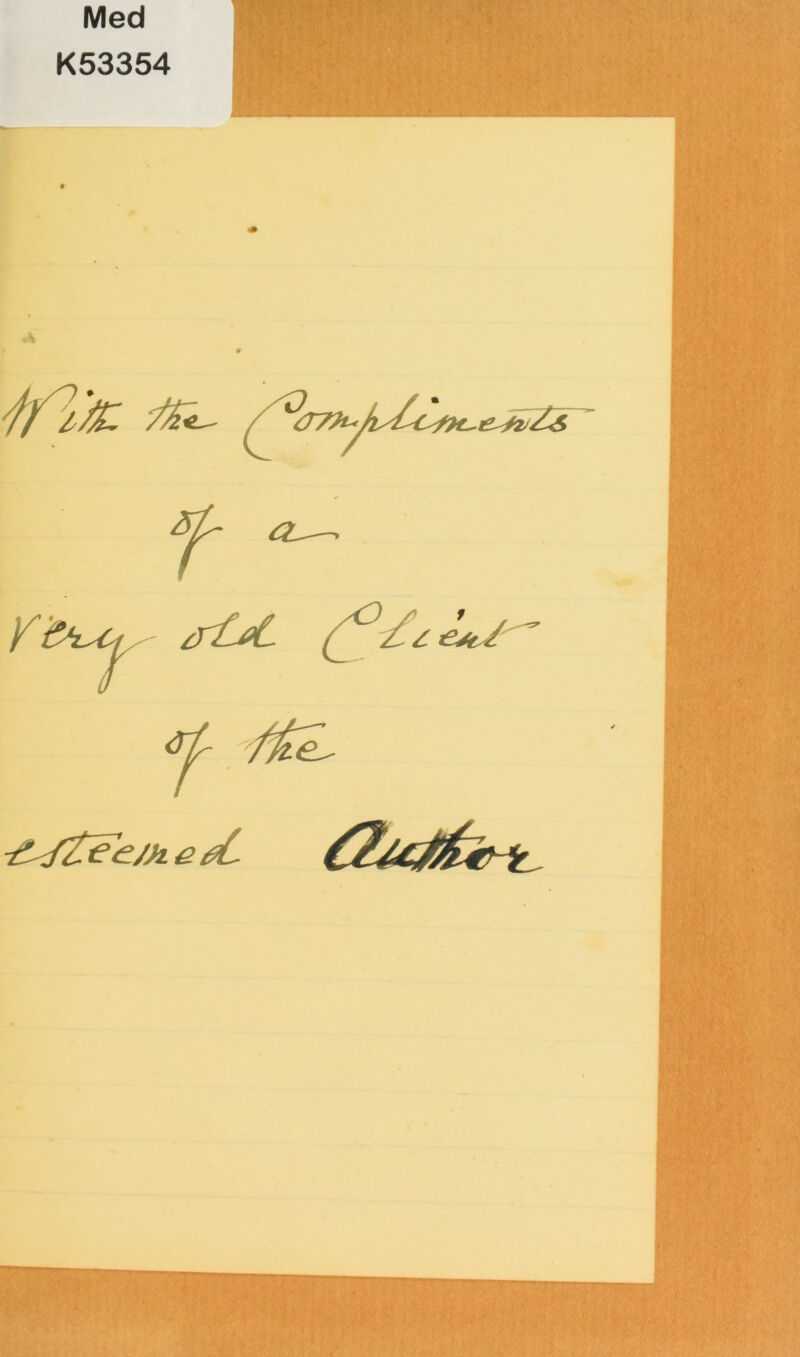 Med
K53354
With the Compliments
of a
very old Client
of the
esteemed Author